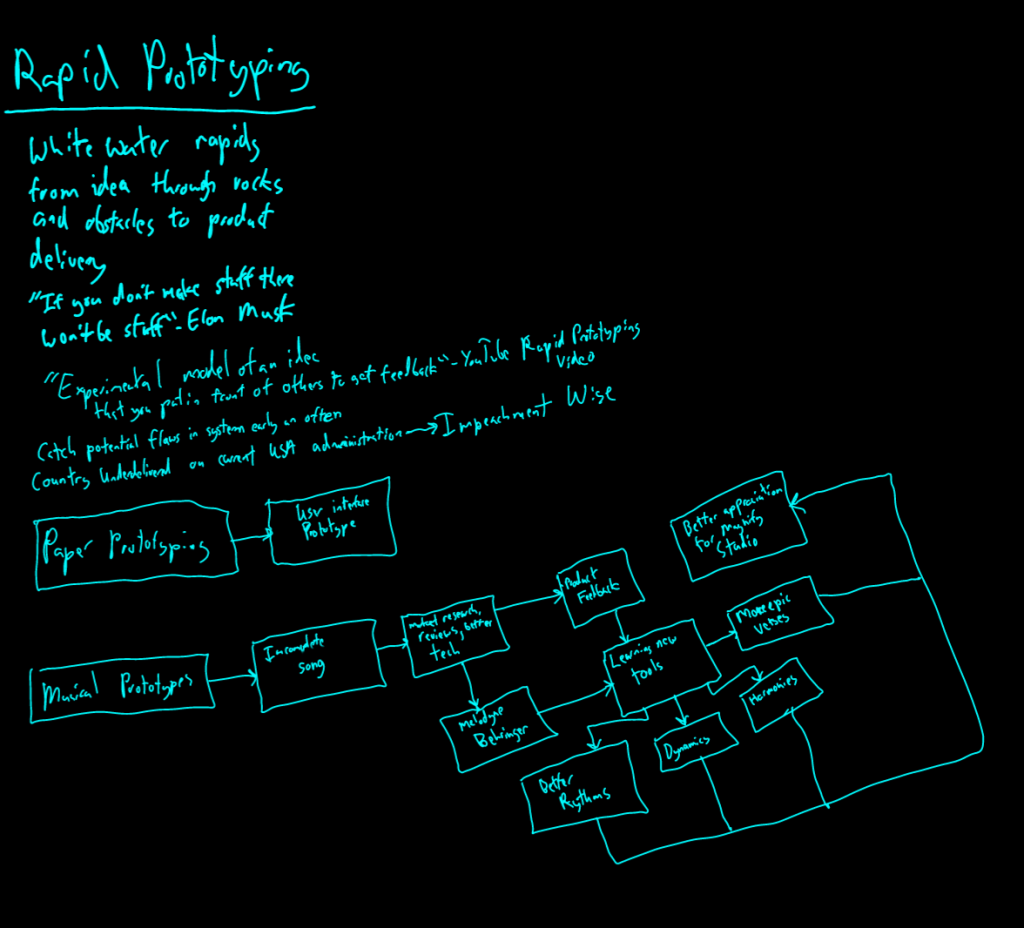 Rapid Prototyping
White water rapids
from idea through rocks
and obstacles to product
delivery
"If you don't make stuff there
won't be stuff" - Elon Musk
"Experimental model of an idea
that you put in front of others to get feedback" - YouTube Rapid Prototyping
Video
Catch potential flaws in system early an often
Country Underdelivered on current USA administration → Impeachment Wise
Paper Prototyping
User interface
Prototype
Better appreciation
for
Studio
Product
Feedback
More epic
verses
Musical Prototypes
Incomplete
song
research,
reviews, better
tech
Learning new
tools
Harmonies
Melodyne
Behringer
Dynamics
Better
Rhythms